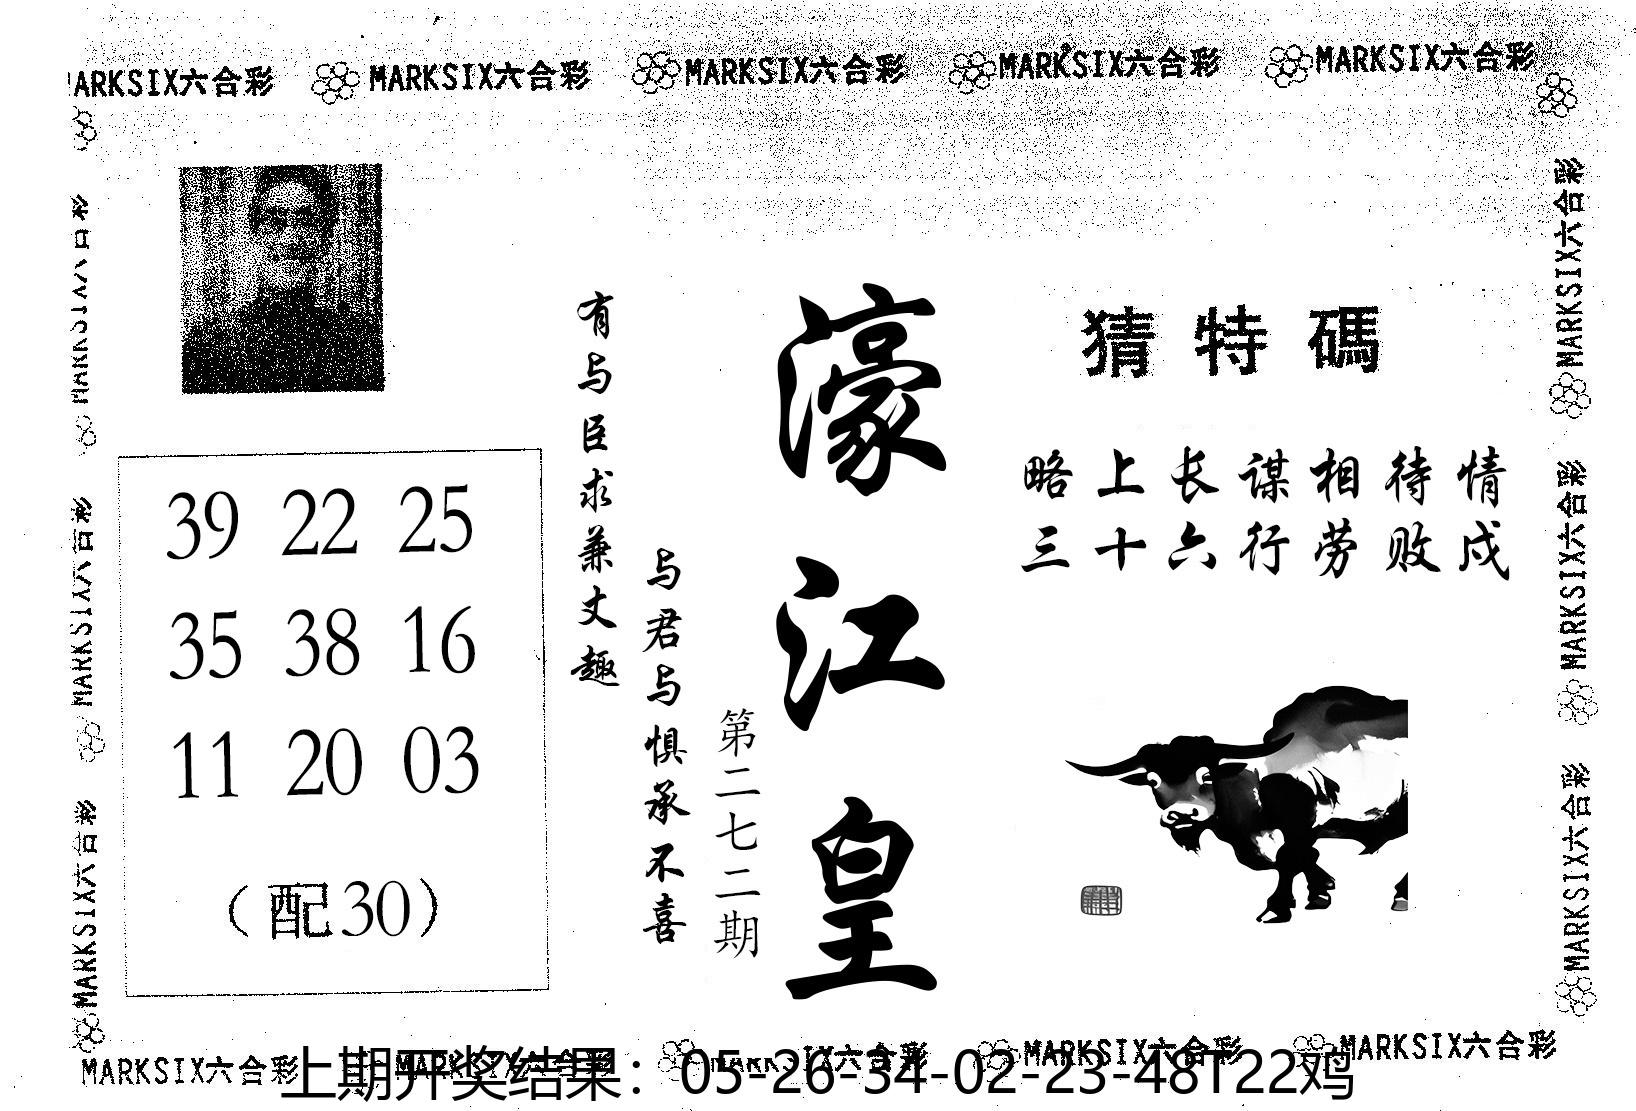 MARKSIX六合彩 MARKSIX六合彩 MARKSIX六合彩 MARKSIX六合彩 MARKSIX六合彩
猜特碼
略上长谋相待情
三十六行劳败戍
濠江皇
第二七二期
与君与惧承不喜
有与臣求兼丈趣
39 22 25
35 38 16
11 20 03
（配30）
MARKSIX六合彩
MARKSIX六合彩
MARKSIX六合彩
MARKSIX六合彩
MARKSIX六合彩
MARKSIX六合彩
MARKSIX六合彩 MARKSIX六合彩 MARKSIX六合彩 MARKSIX六合彩 MARKSIX六合彩
上期开奖结果：05-26-34-02-23-48T22鸡